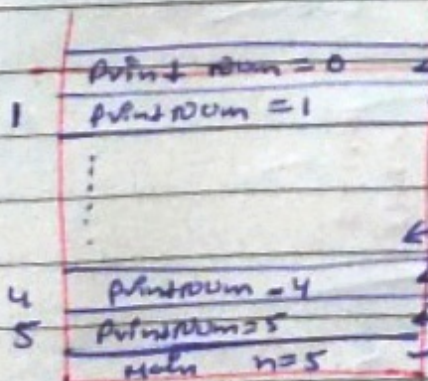 print num = 0
1 printnum = 1
4 printnum = 4
5 printnum = 5
Main n=5